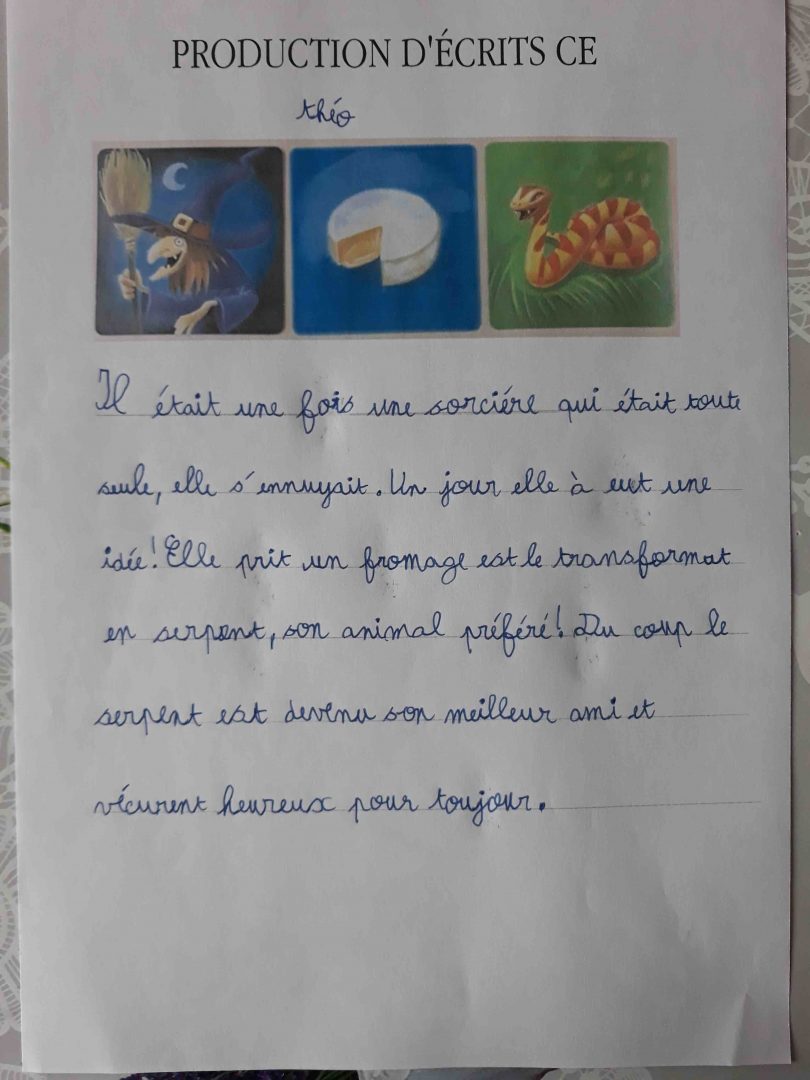 PRODUCTION D'ÉCRITS CE
théo
Il était une fois une sorciére qui était toute
seule, elle s'ennuyait. Un jour elle à eut une
idée! Elle prit un fromage est le transformat
en serpent, son animal préféré! Du coup le
serpent est devenu son meilleur ami et
vécurent heureux pour toujour.